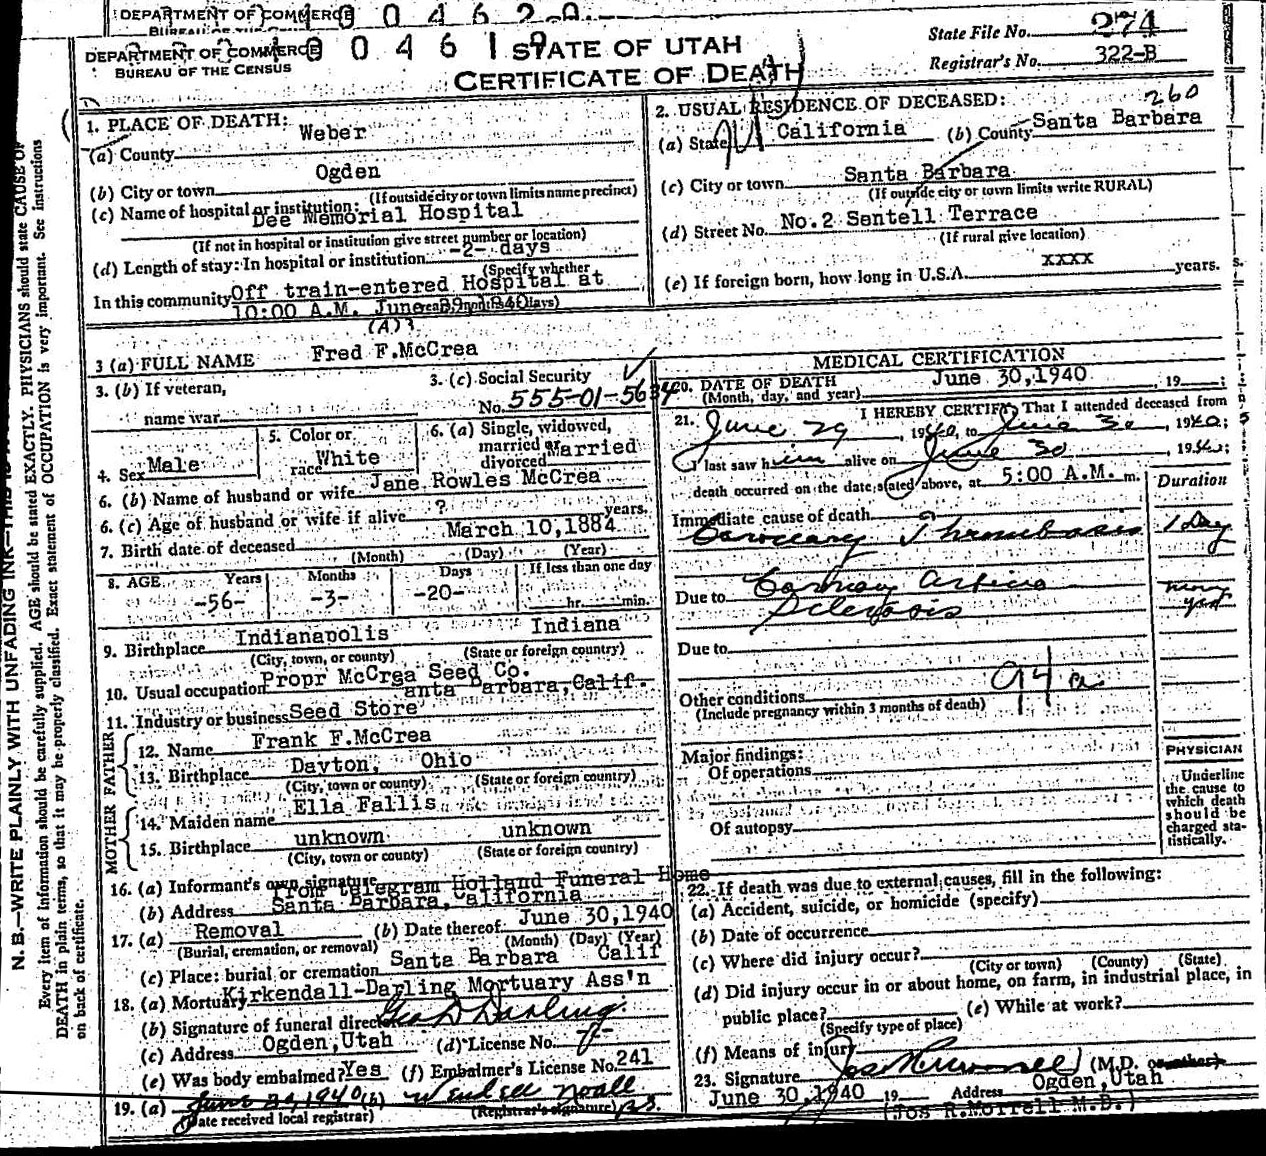 DEPARTMENT OF COMMERCE
DEPARTMENT OF COMMERCE
BUREAU OF THE CENSUS
STATE OF UTAH
CERTIFICATE OF DEATH
State File No. 274
Registrar's No. 322-B
1. PLACE OF DEATH:
(a) County Weber
(b) City or town Ogden
(If outside city or town limits name precinct)
(c) Name of hospital or institution:
Dee Memorial Hospital
(If not in hospital or institution give street number or location)
(d) Length of stay: In hospital or institution -2- days
(Specify whether
In this community Off train-entered Hospital at
10:00 A.M. June
2. USUAL RESIDENCE OF DECEASED: 260
(a) State California (b) County Santa Barbara
(c) City or town Santa Barbara
(If outside city or town limits write RURAL)
(d) Street No. No.2 Sentell Terrace
(If rural give location)
(e) If foreign born, how long in U.S.A. xxxx years.
(A)
3 (a) FULL NAME Fred F.McCrea
3. (b) If veteran,
name war
3. (c) Social Security
No. 555-01-5634
4. Sex Male
5. Color or
race White
6. (a) Single, widowed,
married or
divorced Married
6. (b) Name of husband or wife Jane Rowles McCrea
6. (c) Age of husband or wife if alive ? years.
7. Birth date of deceased March 10,1884
(Month) (Day) (Year)
8. AGE Years Months Days If less than one day
-56- -3- -20- hr. min.
9. Birthplace Indianapolis Indiana
(City, town, or county) (State or foreign country)
10. Usual occupation Propr McCrea Seed Co.
anta Barbara,Calif.
11. Industry or business Seed Store
FATHER
12. Name Frank F.McCrea
13. Birthplace Dayton, Ohio
(City, town or county) (State or foreign country)
MOTHER
14. Maiden name Ella Fallis
15. Birthplace unknown unknown
(City, town or county) (State or foreign country)
16. (a) Informant's own signature From telegram Holland Funeral Home
(b) Address Santa Barbara,California
17. (a) Removal (b) Date thereof June 30,1940
(Burial, cremation, or removal) (Month) (Day) (Year)
(c) Place: burial or cremation Santa Barbara Calif
18. (a) Mortuary Kirkendall-Darling Mortuary Ass'n
(b) Signature of funeral director Geo D Darling
(c) Address Ogden,Utah (d) License No.
(e) Was body embalmed? Yes (f) Embalmer's License No. 241
19. (a) June 30, 1940 (b) Wendell Noall
(Date received local registrar) (Registrar's signature)
MEDICAL CERTIFICATION
20. DATE OF DEATH June 30,1940 , 19 ;
(Month, day, and year)
21. I HEREBY CERTIFY, That I attended deceased from
June 29, 1940, to June 30, 1940;
I last saw him alive on June 30, 1940;
death occurred on the date stated above, at 5:00 A.M. m. Duration
Immediate cause of death
Coronary Thrombosis 1 Day
Due to Coronary Artery
Sclerosis
Due to
Other conditions 94a
(Include pregnancy within 3 months of death)
Major findings:
Of operations
Of autopsy
PHYSICIAN
Underline
the cause to
which death
should be
charged sta-
tistically.
22. If death was due to external causes, fill in the following:
(a) Accident, suicide, or homicide (specify)
(b) Date of occurrence
(c) Where did injury occur?
(City or town) (County) (State)
(d) Did injury occur in or about home, on farm, in industrial place, in
public place? (e) While at work?
(Specify type of place)
(f) Means of injury
23. Signature Jos R Morrell (M.D. or other)
June 30,1940 19 Address Ogden,Utah
(Jos R.Morrell M.D.)
Every item of information should be carefully supplied. AGE should be stated EXACTLY. PHYSICIANS should state CAUSE OF
DEATH in plain terms, so that it may be properly classified. Exact statement of OCCUPATION is very important. See instructions
on back of certificate.
N. B.—WRITE PLAINLY WITH UNFADING INK—THIS IS